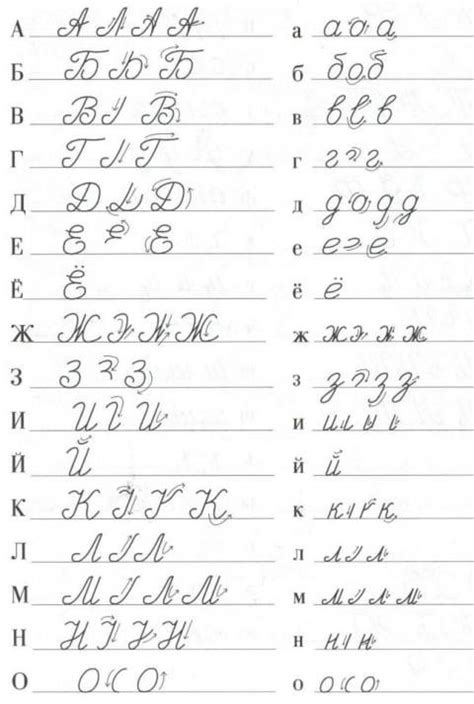 А А Л А А а а о а
Б Б Б б б о б
В В В в в в
Г Г Г г г г
Д Д Д д д о д д
Е Е Е е е е
Ё Ё ё ё
Ж Ж Ж ж ж ж
З З З з з з з
И И И и и и
Й Й й й
К К К к к к
Л Л Л л л л
М М Л М м м л м
Н Н Н н н н
О О С О о о с о